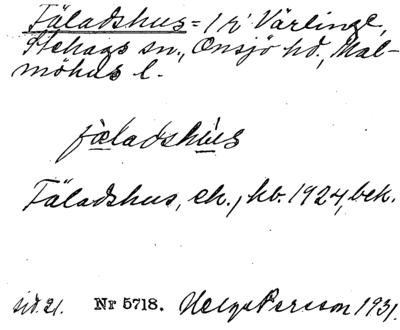 Fäladshus = 1 i Värlinge,
Stehags sn., Onsjö hd., Mal-
möhus l.
fäladshùs
Fäladshus, ek., kb. 1924, bek.
sid. 21. Nr 5718. Helge Persson 1931.